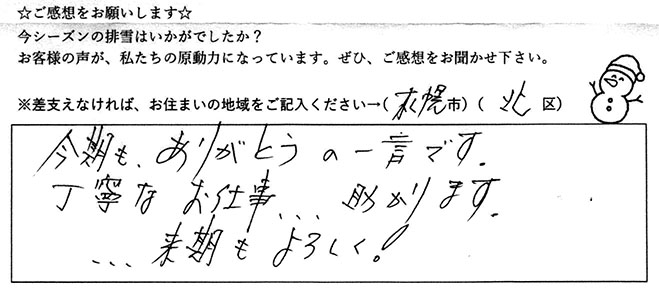 ☆ご感想をお願いします☆
今シーズンの排雪はいかがでしたか？
お客様の声が、私たちの原動力になっています。ぜひ、ご感想をお聞かせ下さい。
※差支えなければ、お住まいの地域をご記入ください→( 札幌市) ( 北 区)
今期も、ありがとうの一言です。
丁寧なお仕事...助かります。
...来期もよろしく。